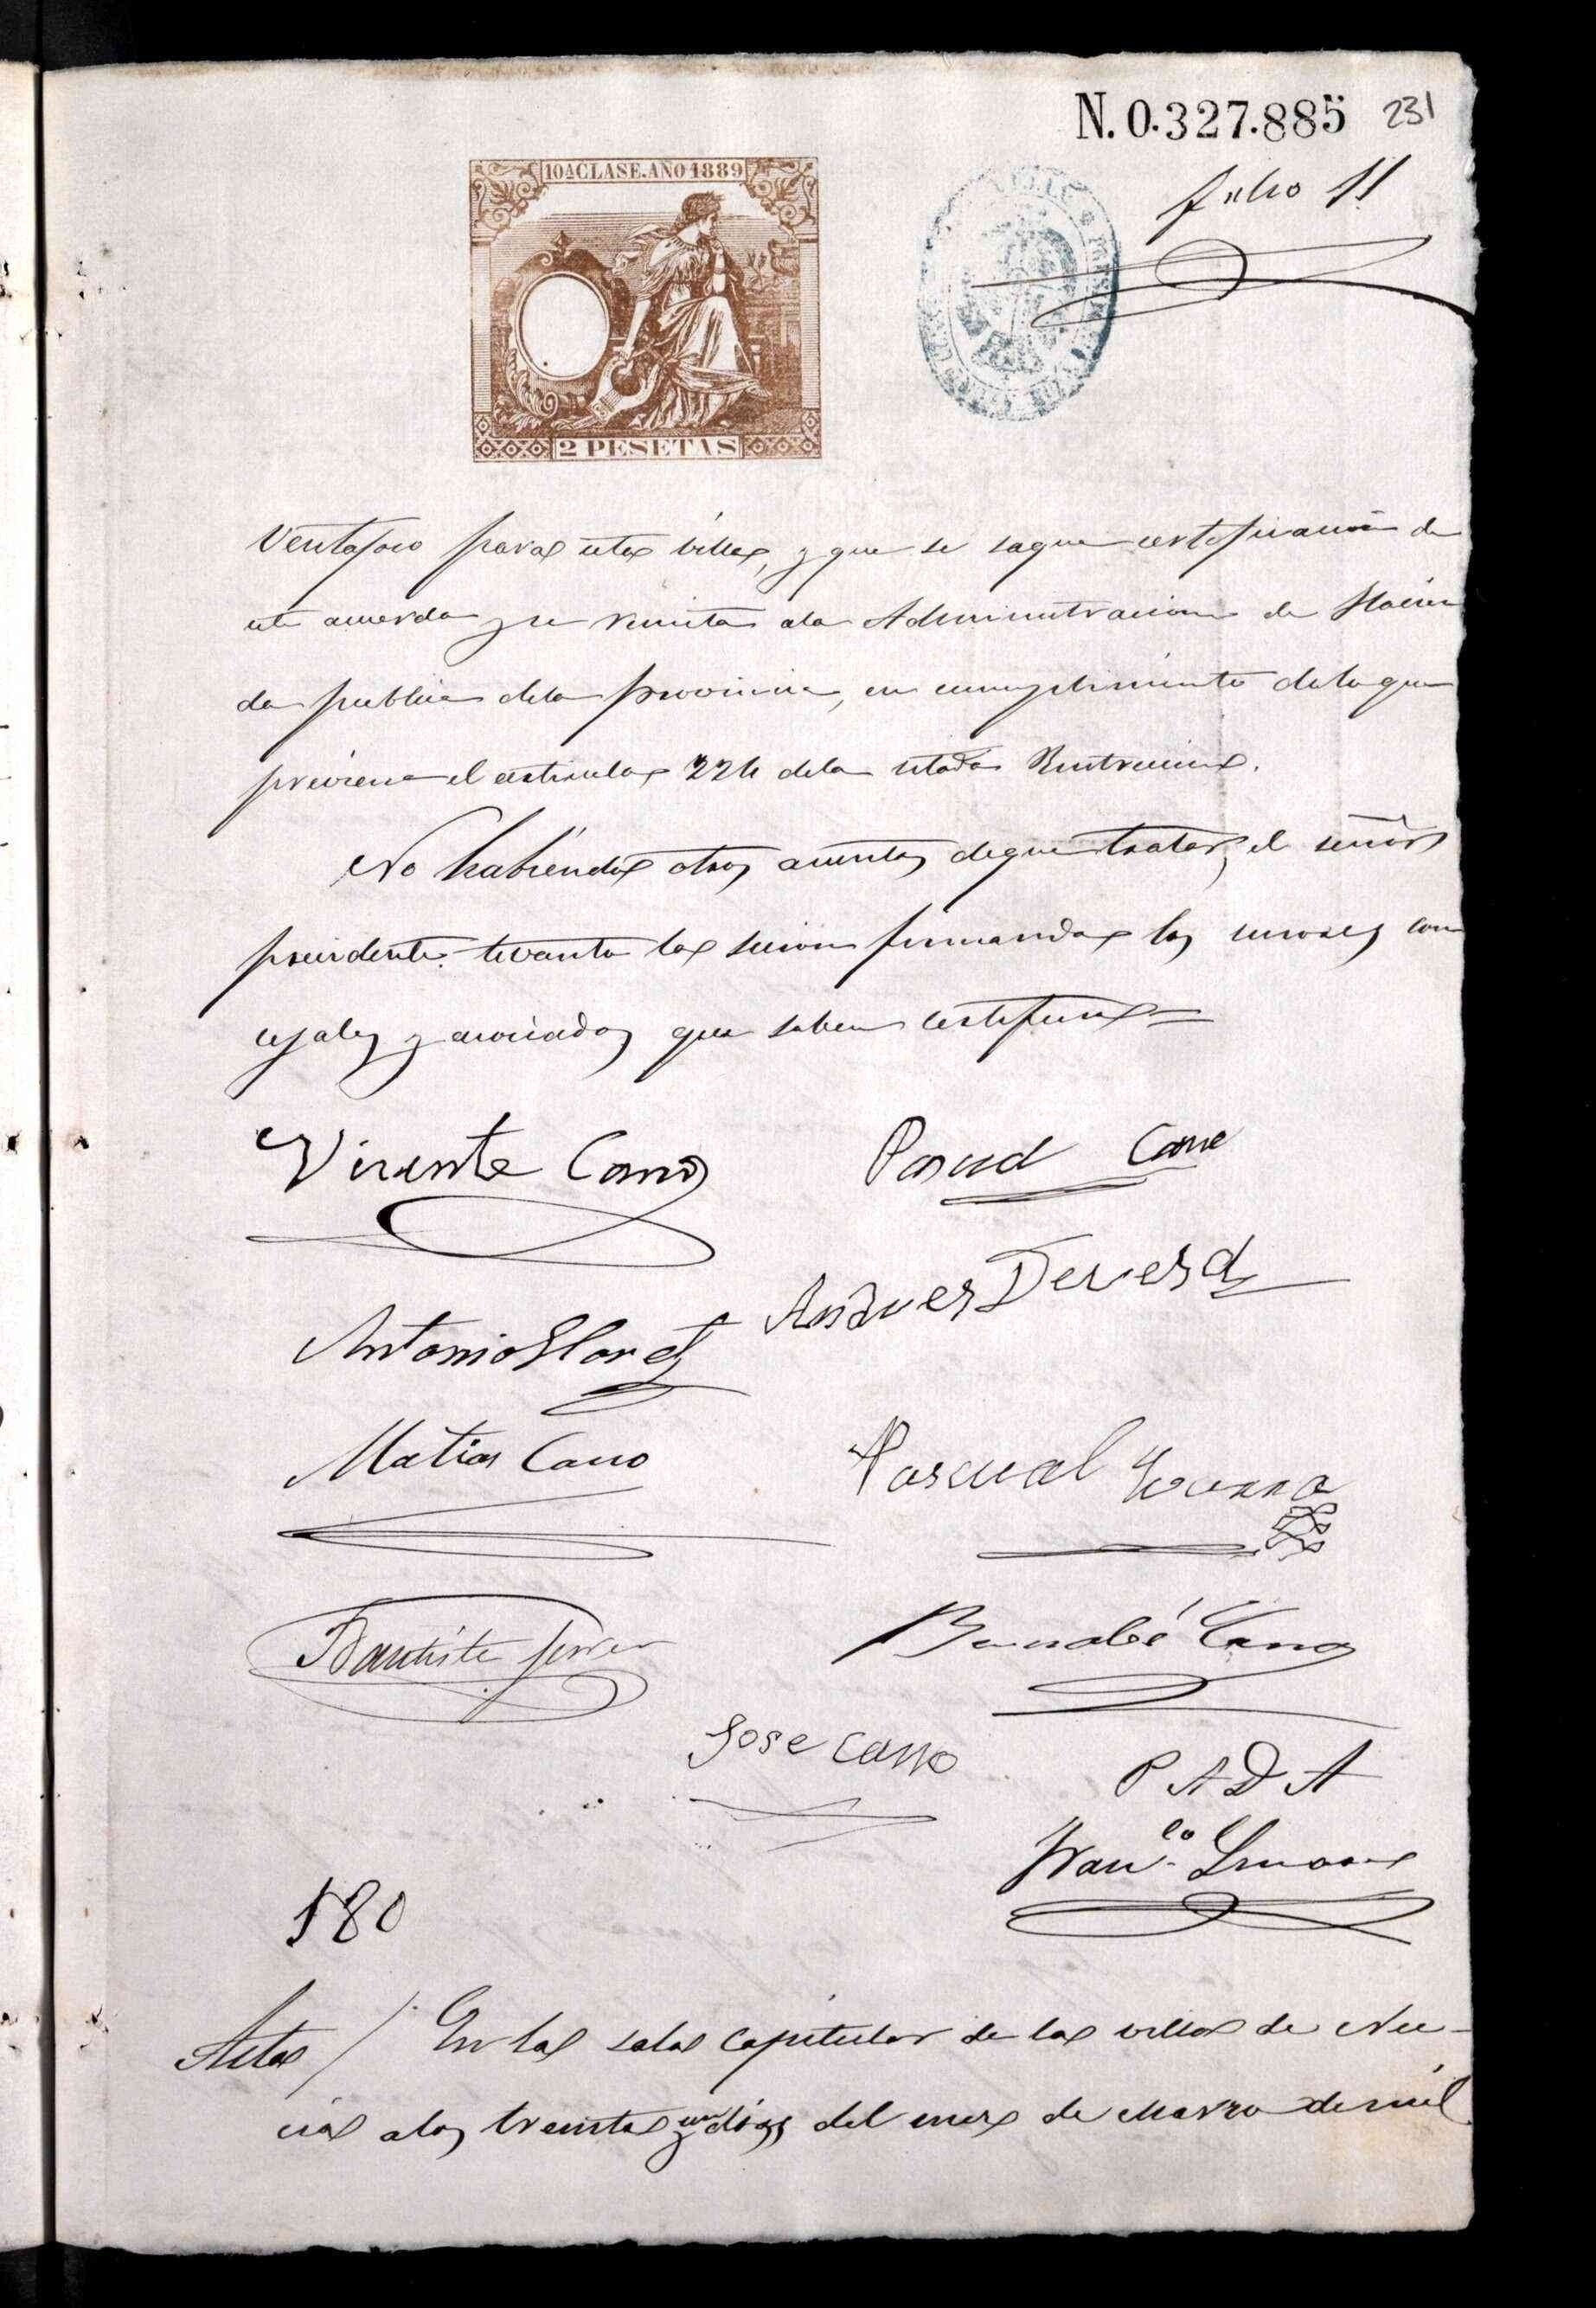 N. 0.327.885 231
folio 11
10ª CLASE. AÑO 1889
2 PESETAS
Ventajoso para esta villa, y que se saque certificacion de
este acuerdo y se remita ala Administracion de Hacien
da publica dela provincia, en cumplimiento delo que
previene el articulo 224 dela citada Instruccion.
No habiendo otros asuntos de que tratar, el señor
presidente levanta la sesion firmando los señores con
cejales y asociados que saben certifico =
Vicente Cano
Pascual Cano
Andres Devesa
Antonio Lloret
Matias Cano
Pascual
Bautista Ferrer
Bernabé Cano
Jose Cano
P A D A
Franco
180
Acta / En la sala capitular de la villa de Nu-
cia a los treinta y un dias del mes de Marzo de mil